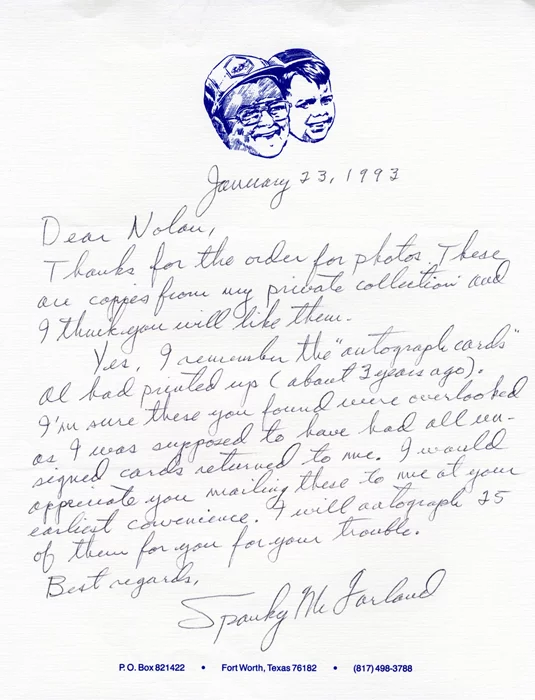 January 23, 1993
Dear Nolan,
Thanks for the order for photos. These
are copies from my private collection and
I think you will like them.
Yes, I remember the "autograph cards"
Al had printed up (about 3 years ago).
I'm sure these you found were overlooked
as I was supposed to have had all un-
signed cards returned to me. I would
appreciate you mailing these to me at your
earliest convenience. I will autograph 25
of them for you for your trouble.
Best regards,
Spanky McFarland
P.O. Box 821422 • Fort Worth, Texas 76182 • (817) 498-3788